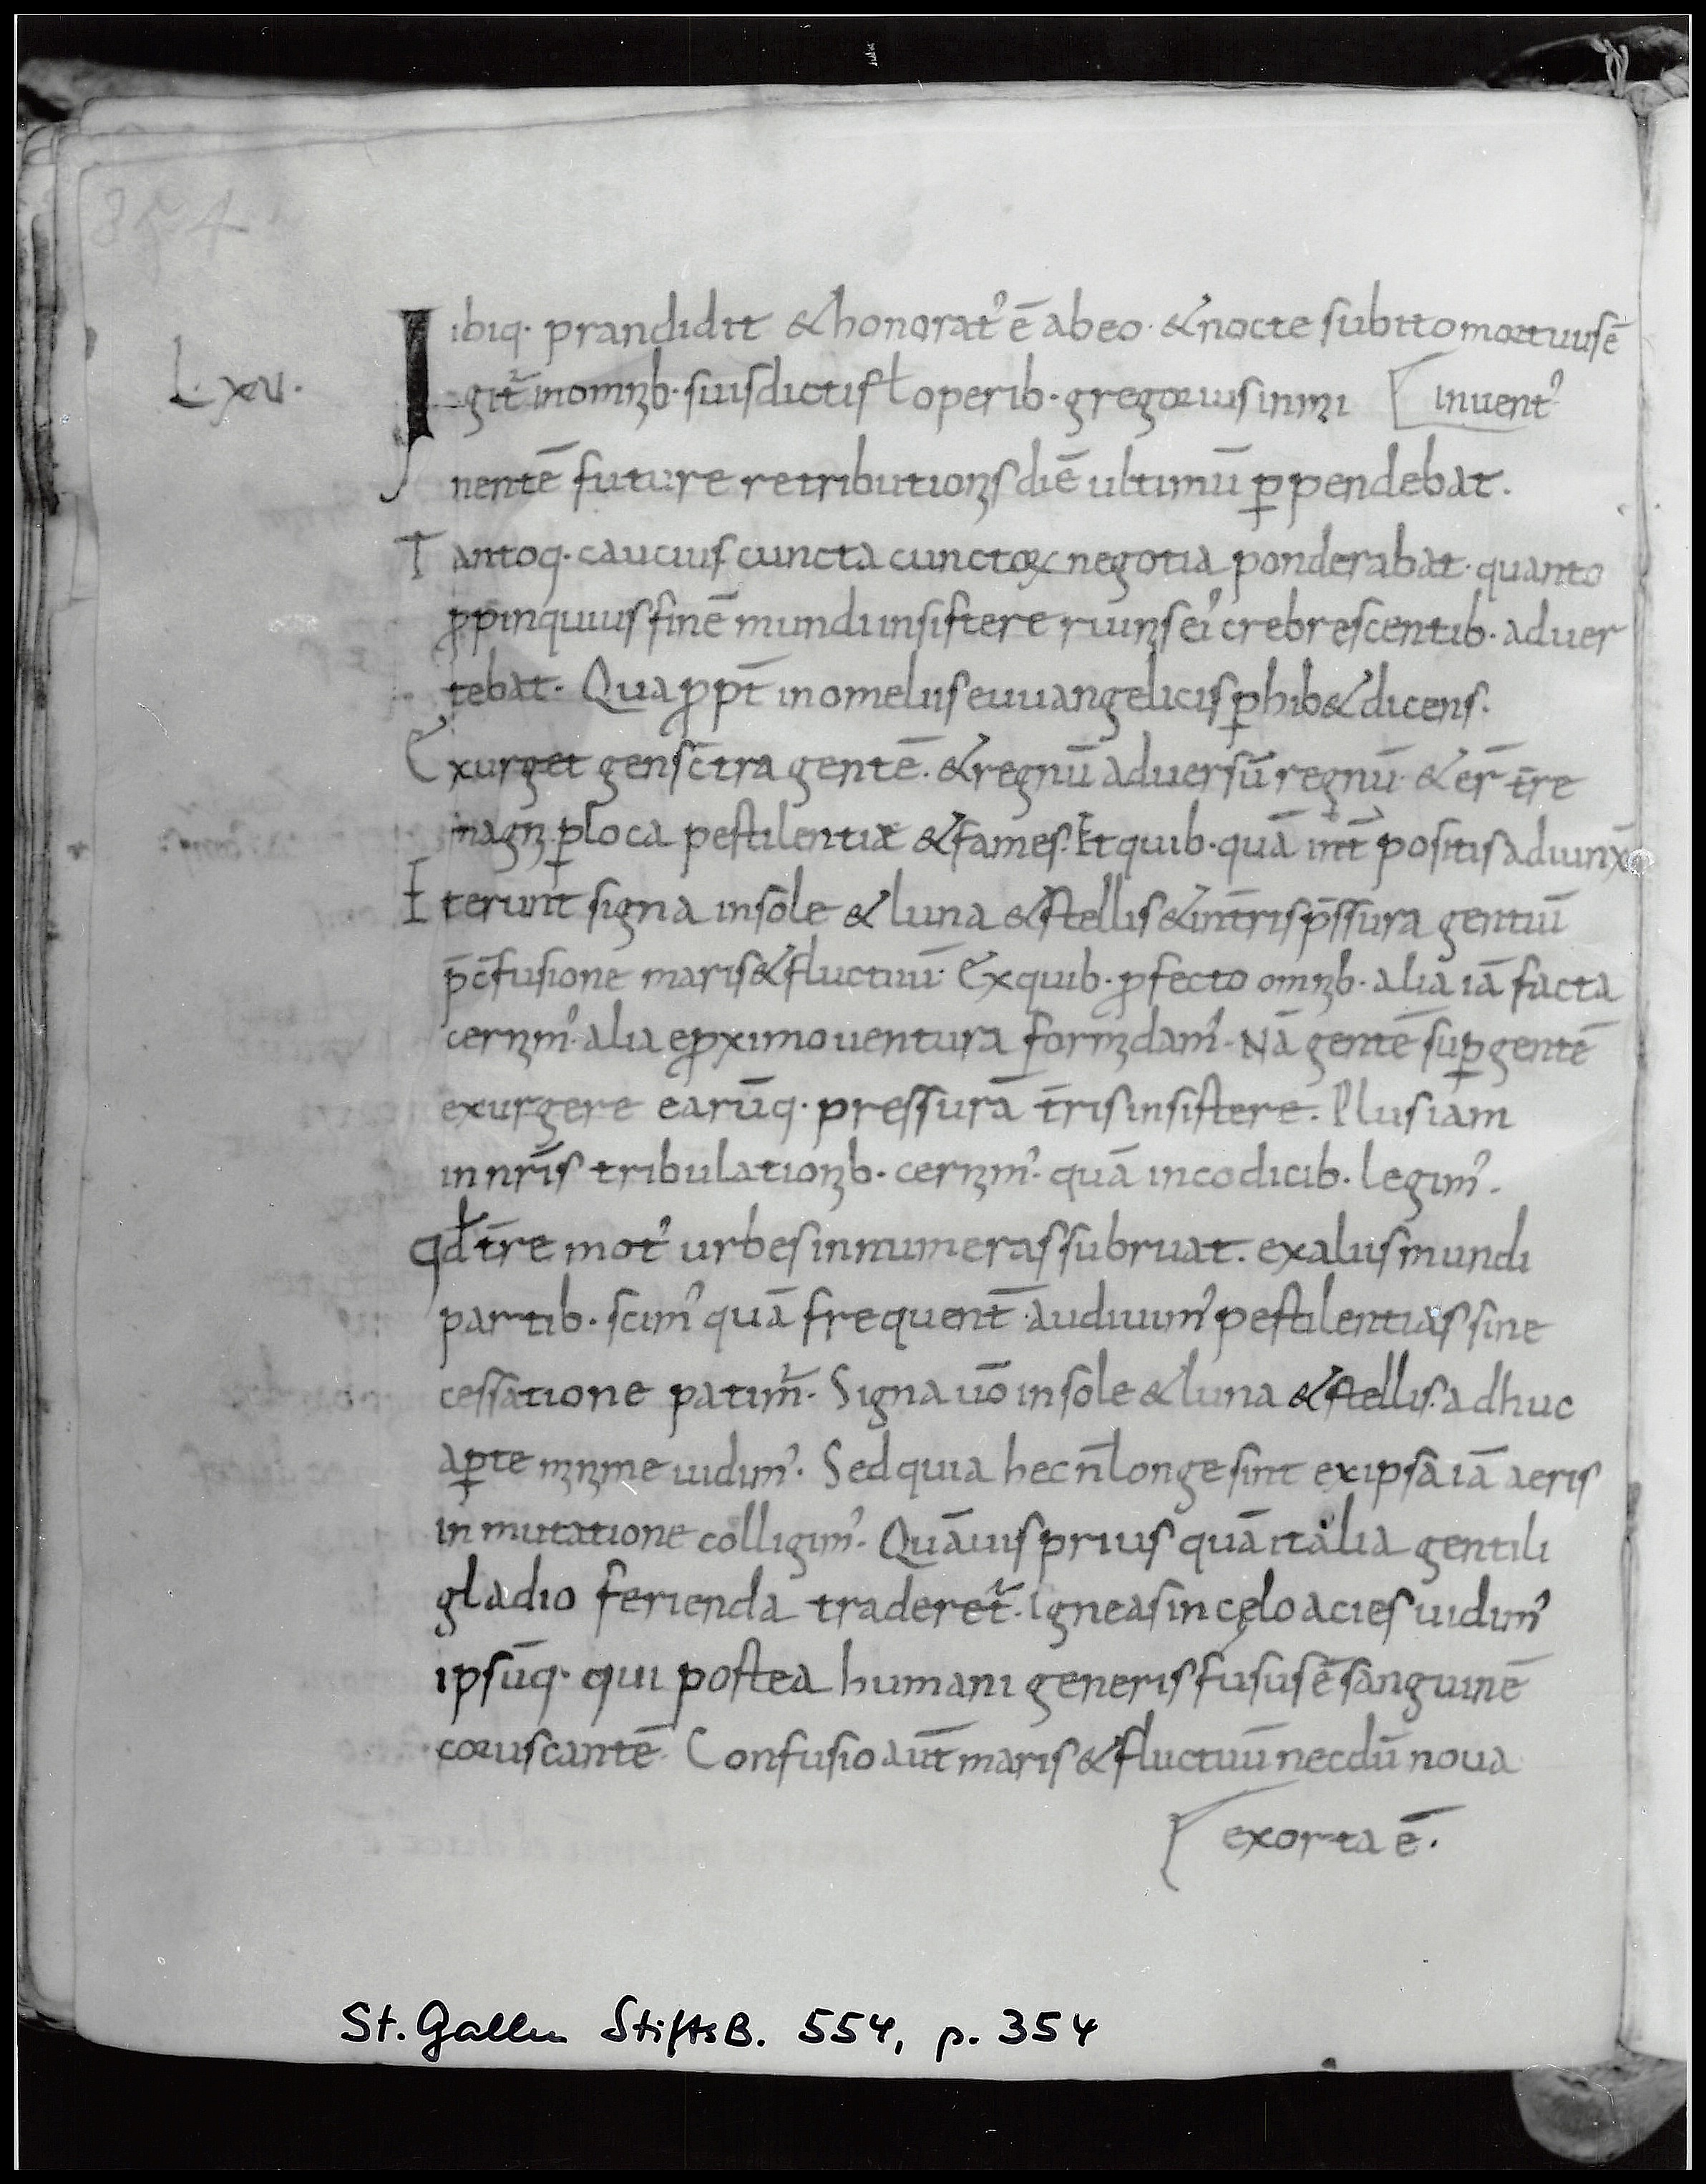 354
ibiq· prandidit & honorat᾿ ē abeo· & nocte subito mortuus ē
L·xv·
Igit᷑ in omnib· suis dictis ł operib· gregorius inmi [inuent᾿
nentē future retributionis diē ultimū ꝑpendebat.
Tantoq· caucius cuncta cunctoꝝ negotia ponderabat· quanto
ꝓpinquius finē mundi insistere ruinis ei᾿ crebrescentib· aduer
tebat· Quaꝓpt̄ in omeliis euuangelicis ꝑhib& dicens·
Exurget gens c̄tra gentē· & regnū aduersū regnū· & er̄ t̄re
magni ꝑ loca pestilentiæ & fames· Et quib· quā int̄ positis adiunx̄
Iterunt signa in sole & luna & stellis & in t̄ris p̄ssura gentiū
p̄ c̄fusione maris & fluctuū· Ex quib· ꝓfecto omnib· alia iā facta
cernim᾿· alia e ꝓximo uentura formidam᾿· Nā gentē suꝑ gentē
exurgere earūq· pressurā t̄ris insistere. Plus iam
in nr̄is tribulationib· cernim᾿· quā in codicib· legim᾿.
qđ t̄re mot᾿ urbes innumeras subruat. ex aliis mundi
partib· scim᾿ quā frequent̄ audiuim᾿ pestilentias sine
cessatione patim᷑· Signa ūo in sole & luna & stellis· adhuc
aꝑte minime uidim᾿· Sed quia hec n̄ longe sint ex ipsa iā aeris
inmutatione colligim᾿· Quāuis prius quā italia gentili
gladio ferienda traderet᷑· Igneas in cęlo acies uidim᾿
ipsūq· qui postea humani generis fusus ē sanguinē
coruscantē· Confusio aut̄ maris & fluctuū necdū noua
[exorta ē.
St. Gallen StiftsB. 554, p. 354